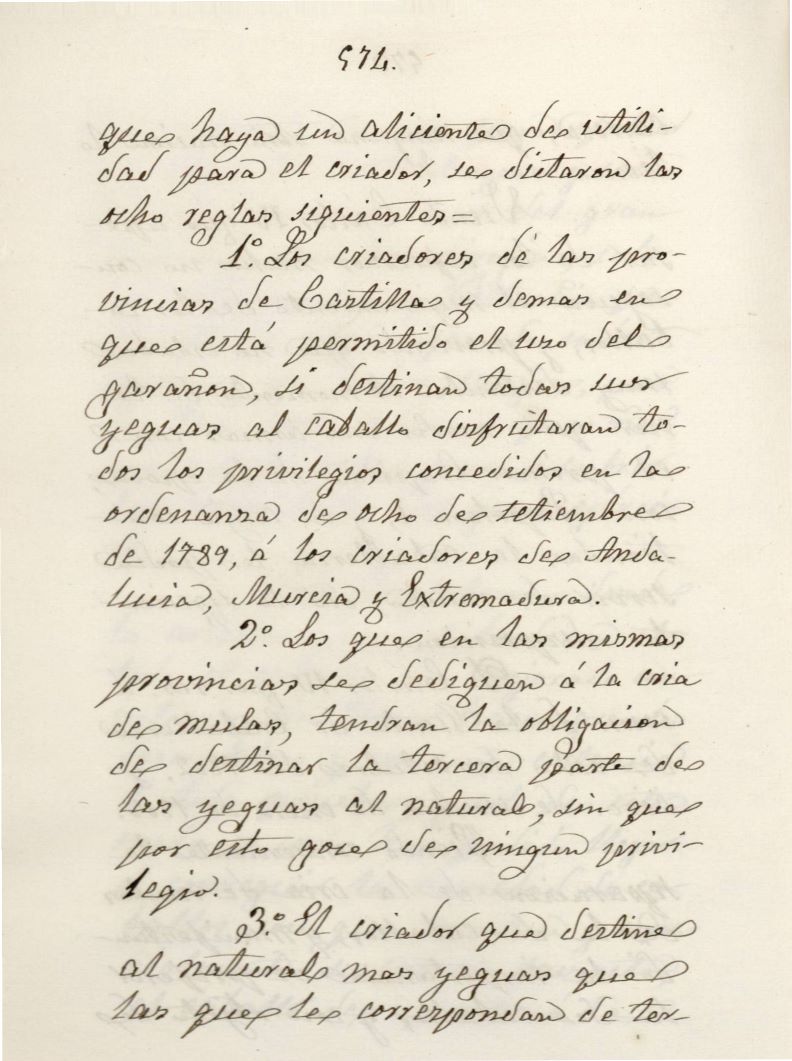 574.
que haya un aliciente de utili-
dad para el criador, se dictaron las
ocho reglas siguientes=
1º. Los criadores de las pro-
vincias de Castilla y demas en
que está permitido el uso del
garañon, si destinan todas sus
yeguas al caballo disfrutaran to-
dos los privilegios concedidos en la
ordenanza de ocho de setiembre
de 1789, á los criadores de Anda-
lucia, Murcia y Extremadura.
2º. Los que en las mismas
provincias se dediquen á la cria
de mulas, tendran la obligacion
de destinar la tercera parte de
las yeguas al natural, sin que
por esto goce de ningun privi-
legio.
3.º El criador que destine
al natural mas yeguas que
las que le correspondan de ter-